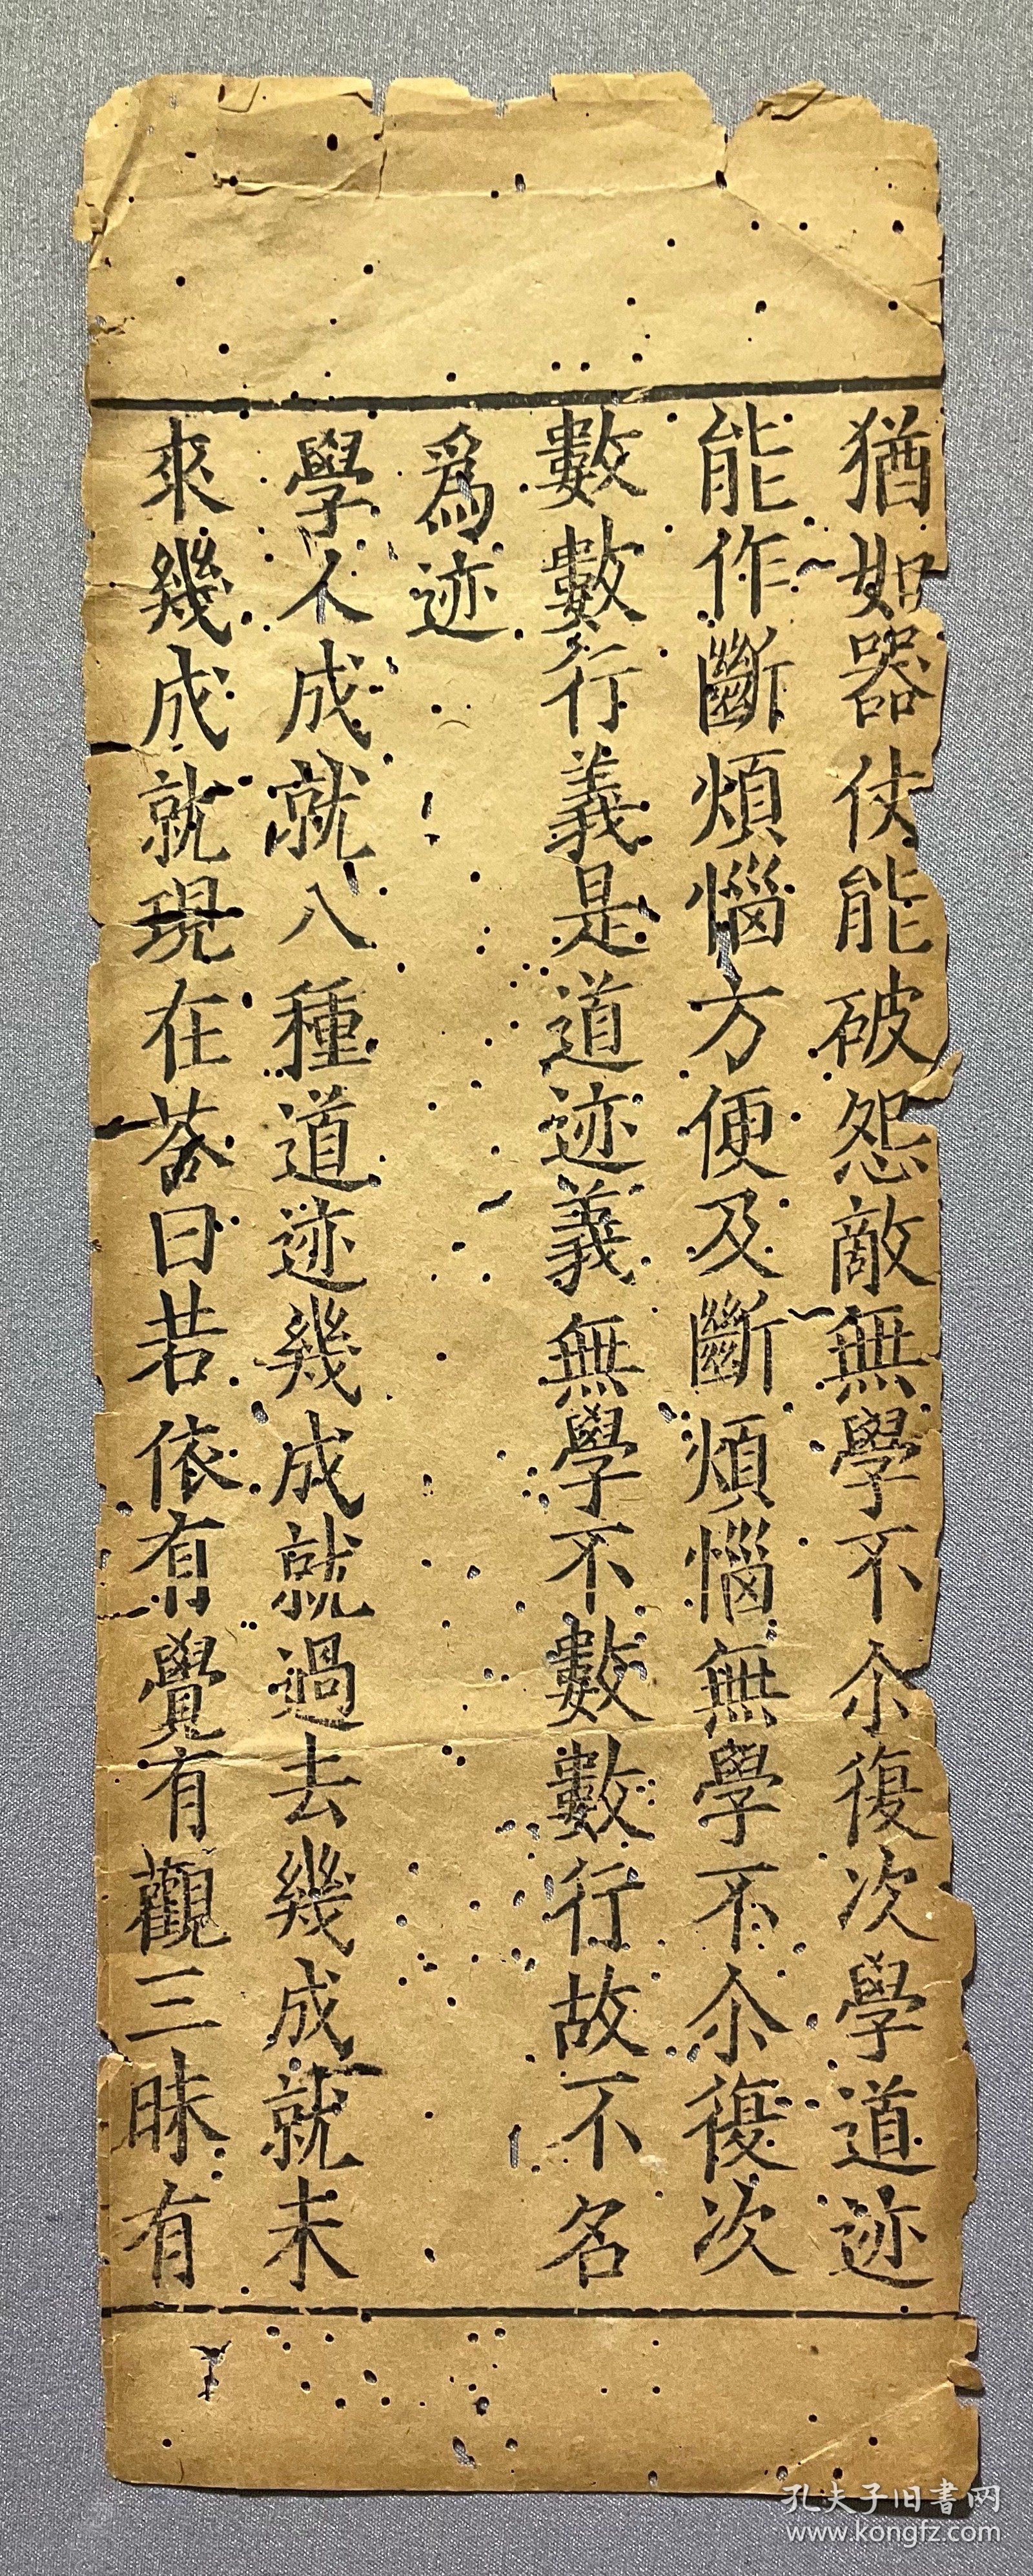 猶如器仗能破怨敵無學不尒復次學道迹
能作斷煩惱方便及斷煩惱無學不尒復次
數數行義是道迹義無學不數數行故不名
爲迹
學人成就八種道迹幾成就過去幾成就未
來幾成就現在荅曰若依有覺有觀三昧有
孔夫子旧書网
www.kongfz.com